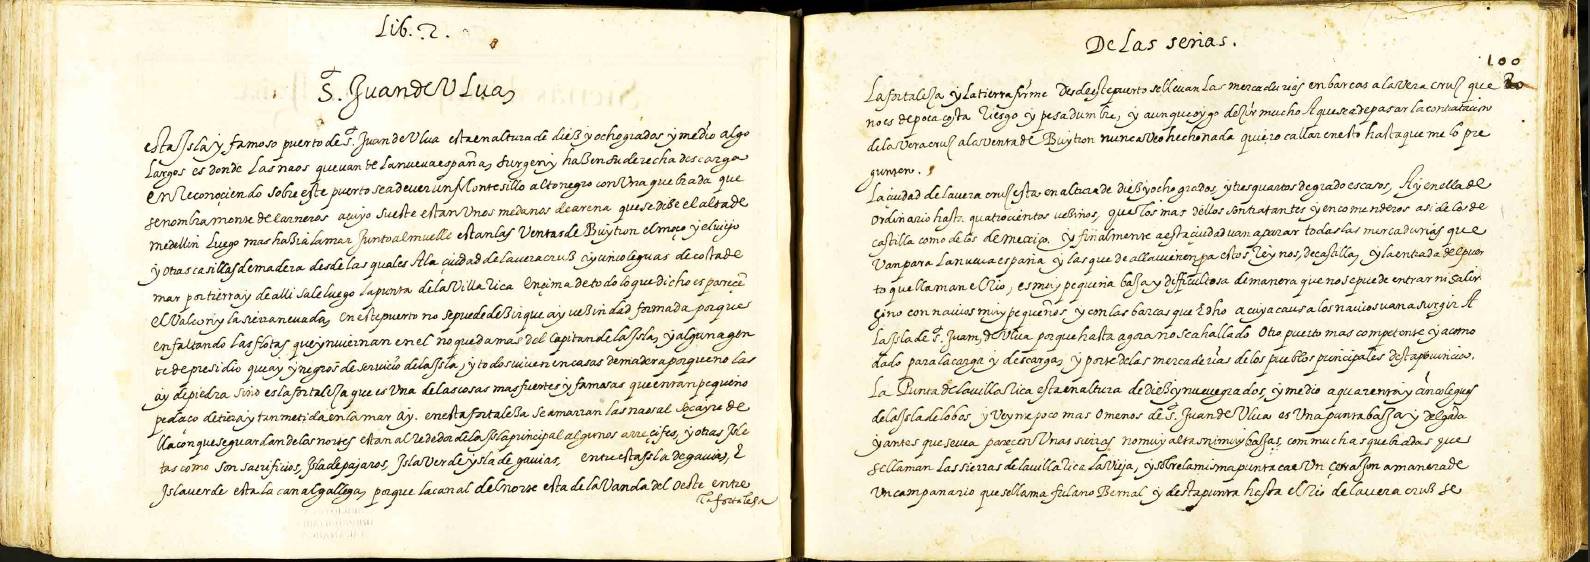 Lib. 2.
S. Juan de Ulua,
esta Isla y famoso puerto de S. Juan de Ulua esta en altura de dieß y ocho grados y medio algo
Largos es donde Las naos que van de La nueva españa, surgen y haßen su derecha descarga
en Reconociendo sobre este puerto se a de ver un Montesillo alto negro con Una quebrada que
se nombra monte de Carneros a cuyo sueste estan Unos medanos de arena que se diße el alta de
medellin Luego mas haßia la mar Junto al muelle estan las Ventas de Buytron el moço y el viejo
y otras casillas de madera desde las quales A la çiudad de la vera cruß ay cinco leguas de costa de
mar por tierra y de alli sale luego la punta de la Villa Rica ençima de todo lo que dicho es pareçe
el Valcon y la sierra nevada, en este puerto no se puede deßir que ay veßindad formada porque
en faltando las flotas que ynviernan en el no queda mas del Capitan de la Isla, y alguna gen
te de presidio que ay y negros de servicio de la Isla, y todos viven en casas de madera porque no las
ay de piedra sino es la fortaleßa que es Una de las cosas mas fuertes y famosas que en tan pequeño
pedaço de tierra y tan metida en la mar ay. en esta fortaleßa se amarran las naos al Socayre de
lla con que se guardan de los nortes estan al Rededor de la Isla principal algunos arreçifes, y otras Isle
tas como son sacrificios, Isla de pajaros, Isla Verde y sla de gavias, entre esta Isla de gavias, E
Isla verde esta la canal gallega, porque la canal del norte esta de la Vanda del Oeste entre
La fortaleßa
De Las señas.
100
La fortaleza y La tierra firme Desde este puerto se llevan las mercadurias en barcos a la Vera Cruz que
no es de poca costa Riesgo y pesadumbre, y aunque oygo deßir mucho A que se a de pasar la contratacion
de la Veracruz a la Venta de Buytron nunca veo hecho nada quiero callar en esto hasta que me lo pre
gunten.
La çiudad de la vera cruz esta en altura de dieß y ocho grados, y tres quartos de grado escasos, Ay en ella de
Ordinario hasta quatrocientos veßinos, que Los mas dellos son tratantes y encomenderos asi de los de
castilla como de los de mexico. y finalmente a esta çiudad van a parar todas las mercadurias que
Van para La nueva españa y las que de alla vienen pa estos Reynos, de castilla, y La entrada del puer
to que llaman el Rio, es muy pequeña baßa y difficultosa de manera que no se puede entrar ni salir
sino con navios muy pequeños y con las barcas que E dho a cuya causa los navios van a surgir A
La Isla de S. Juan, de Ulua porque hasta agora no se a hallado Otro puerto mas competente y acomo
dado para la carga y descarga, y porte de las mercaderias de los pueblos principales desta provincia.
La Punta de la villa Rica esta en altura de dieß y nueve grados, y medio a quarenta y cinco leguas
de la Isla de lobos, y Veynte poco mas o menos de S. Juan de Ulua es Una punta baßa y delgada
y antes que se vea parecen Unas sierras no muy altas ni muy baßas, con muchas quebradas que
se llaman Las sierras de la villa Rica La Vieja, y sobre la misma punta cae Un coraßon a manera de
Un campanario que se llama fulano Bernal y desta punta hasta el Rio de la vera cruß se